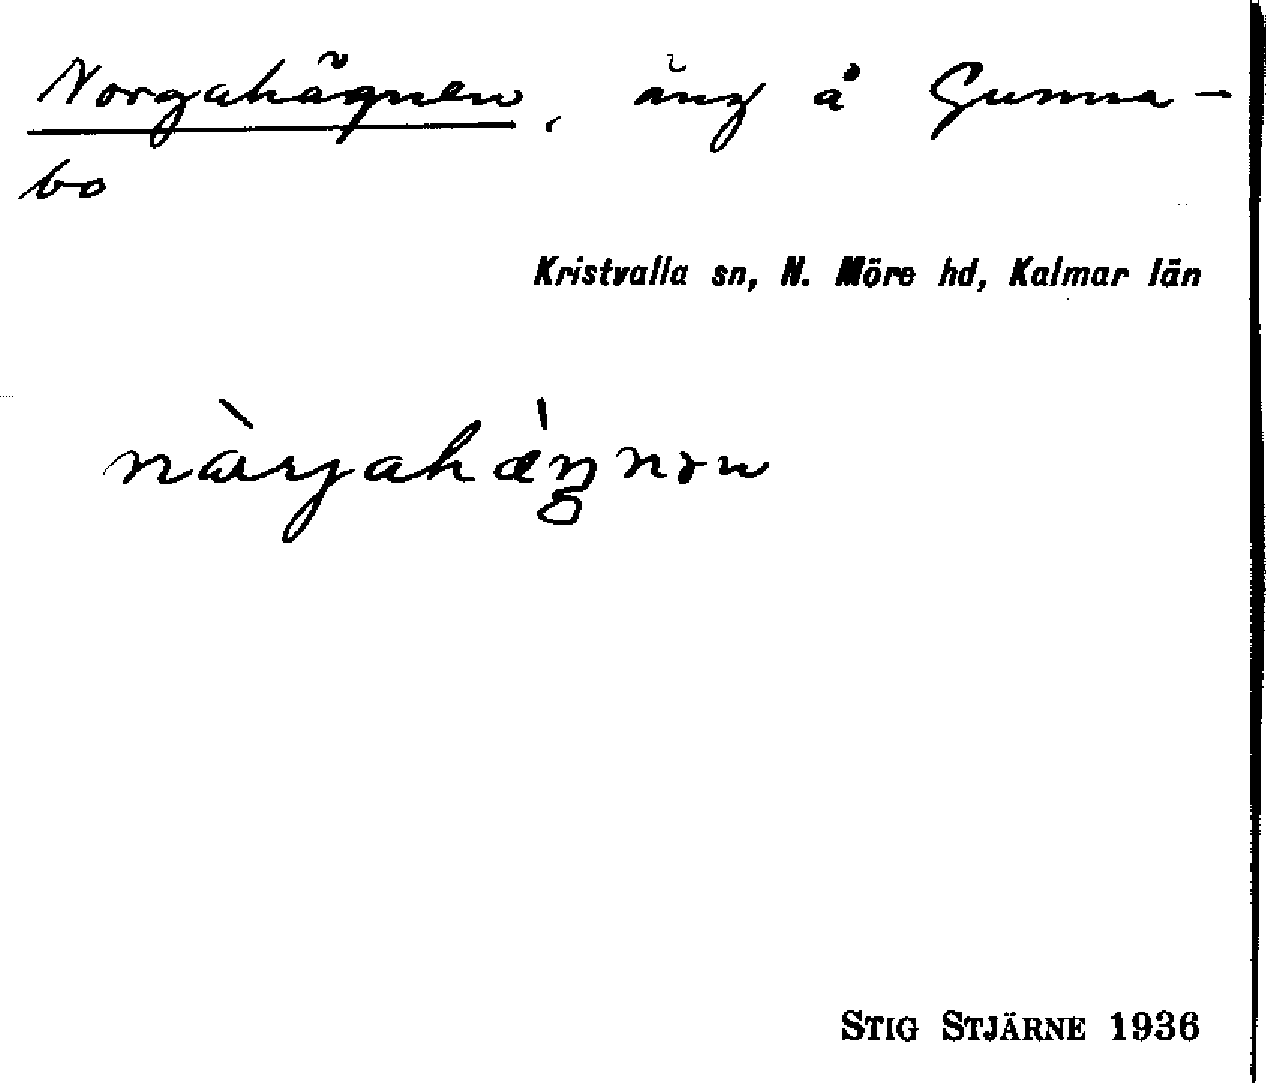 Norgahägnen, äng å Gunna-
bo
Kristvalla sn, N. Möre hd, Kalmar län
STIG STJÄRNE 1936